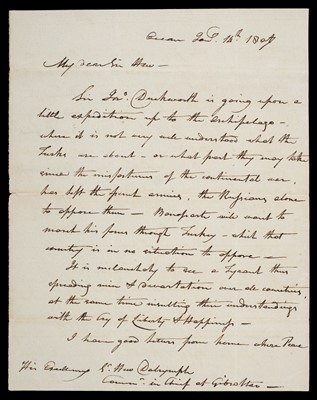 Ocean Jan. 14th 1807
My dear Sir Hew —
Sir Jno. Duckworth is going upon a
little expedition up to the Archipelago —
where it is not very well understood what the
Turks are about — or what part they may take
since the misfortunes of the continental war
has left the French armies, the Russians alone
to oppose them — Bonaparte will want to
march his force through Turkey — which that
country is in no situation to oppose —
It is melancholy to see a Tyrant thus
spreading ruin & devastation over all countries,
at the same time insulting their understandings
with the Cry of Liberty & Happiness —
I have good letters from home where Peace
His Excellency Sr. Hew Dalrymple
in Chief at Gibraltar —